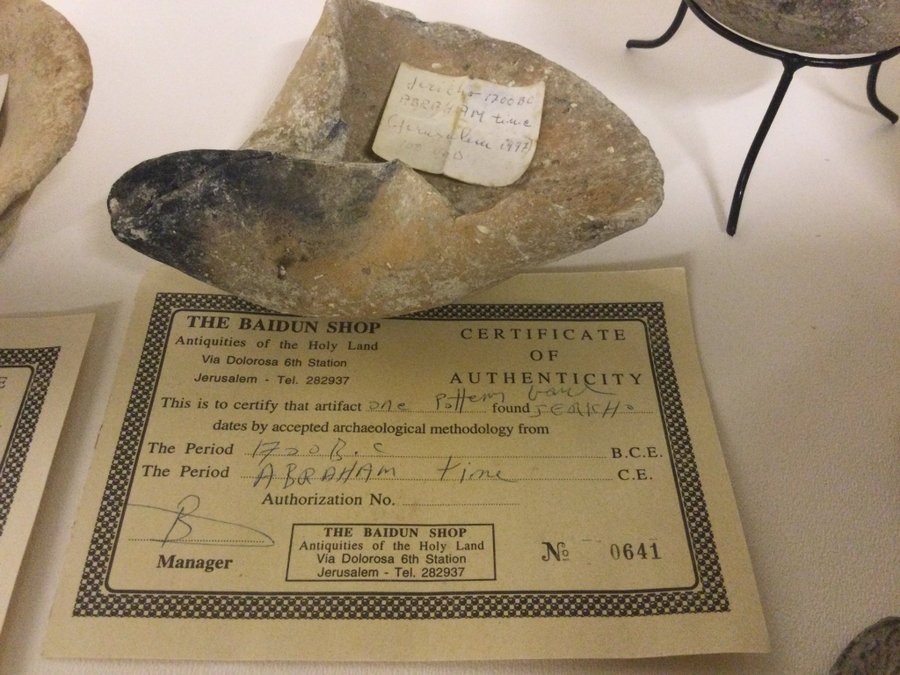 Jericho 1700 BC
ABRAHAM time
(Jerusalem 1997)
100 USD
THE BAIDUN SHOP
Antiquities of the Holy Land
Via Dolorosa 6th Station
Jerusalem - Tel. 282937
CERTIFICATE
OF
AUTHENTICITY
This is to certify that artifact one Pottery found JERICHO
dates by accepted archaeological methodology from
The Period 1700 B.C B.C.E.
The Period ABRAHAM time C.E.
Authorization No.
B
Manager
THE BAIDUN SHOP
Antiquities of the Holy Land
Via Dolorosa 6th Station
Jerusalem - Tel. 282937
No 0641